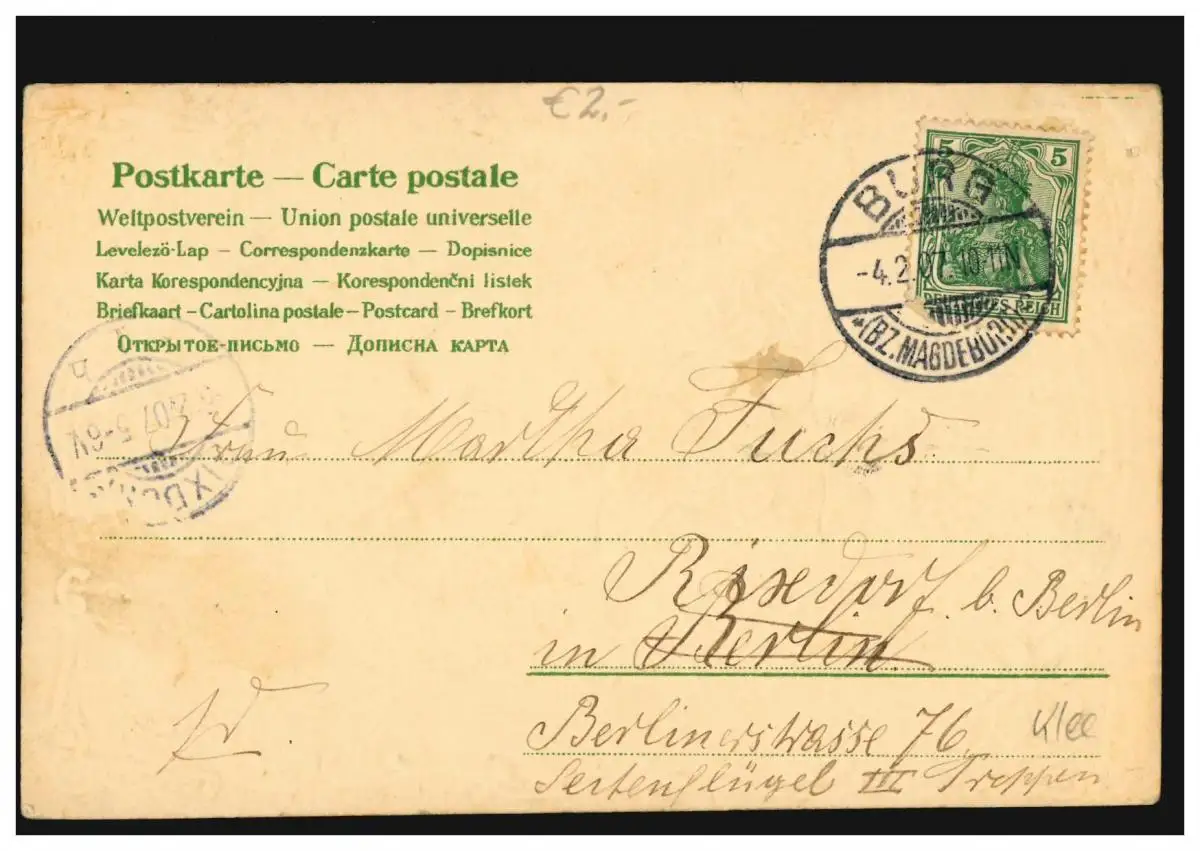 €2,-
Postkarte — Carte postale
Weltpostverein — Union postale universelle
Levelező-Lap – Correspondenzkarte – Dopisnice
Karta Korespondencyjna – Korespondenčni listek
Briefkaart – Cartolina postale – Postcard – Brefkort
Открытое-письмо — Дописна карта
5 5
DEUTSCHES REICH
BURG
-4.2.07.10-11N
*(BZ.MAGDEBURG)
07.5-6V
IXDO
Frau Martha Fuchs
Rixdorf b. Berlin
in Berlin
Berlinerstrasse 76
Klee
Seitenflügel III Treppen